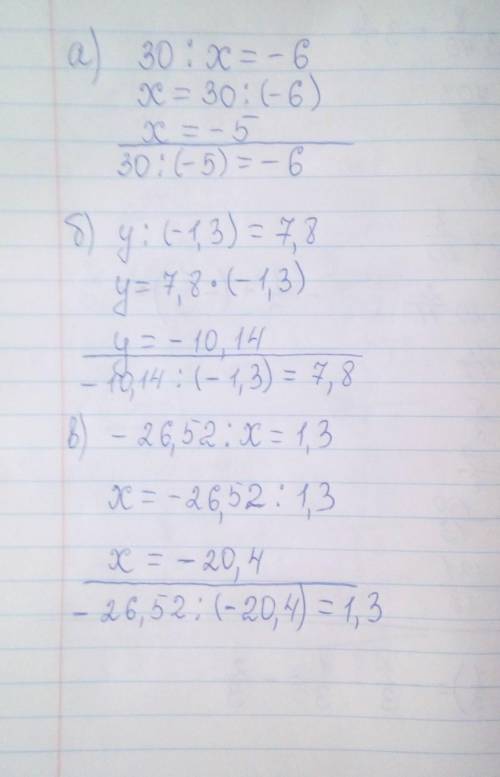 а) 30 : x = - 6
x = 30 : (-6)
x = - 5
30 : (-5) = - 6
б) y : (-1,3) = 7,8
y = 7,8 · (-1,3)
y = - 10,14
- 10,14 : (-1,3) = 7,8
в) - 26,52 : x = 1,3
x = - 26,52 : 1,3
x = - 20,4
- 26,52 : (-20,4) = 1,3